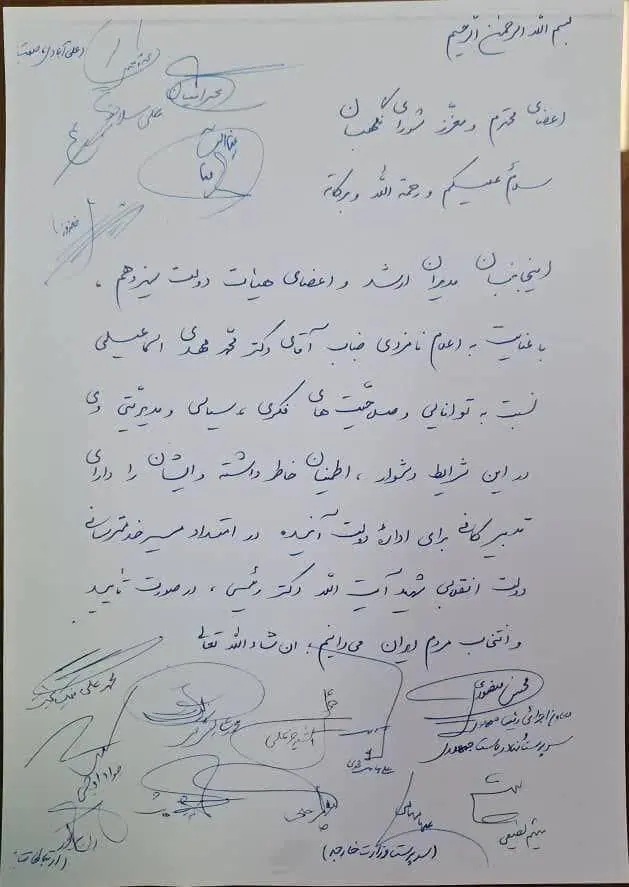 بسم الله الرحمن الرحیم
اعضای محترم و معزّز شورای نگهبان
سلامٌ علیکم و رحمة الله و برکاته
اینجانبان مدیران ارشد و اعضای هیأت دولت سیزدهم ،
با عنایت به اعلام نامزدی جناب آقای دکتر محمّد مهدی اسماعیلی
نسبت به توانایی و صلاحیّت های فکری ، سیاسی و مدیریّتی وی
در این شرایط دشوار ، اطمینان خاطر داشته و ایشان را دارای
تدبیر کافی برای ادارهٔ دولت آینده در امتداد مسیر خدمترسانی
دولت انقلابی شهید آیت الله دکتر رئیسی ، در صورت تأیید
و انتخاب مردم ایران می‌دانیم ؛ ان شاء الله تعالی
محسن منصوری
معاون اجرائی رئیس جمهور
سرپرست نهاد ریاست جمهوری
میثم لطیفی
(سرپرست وزارت خارجه)
(ارتباطات)